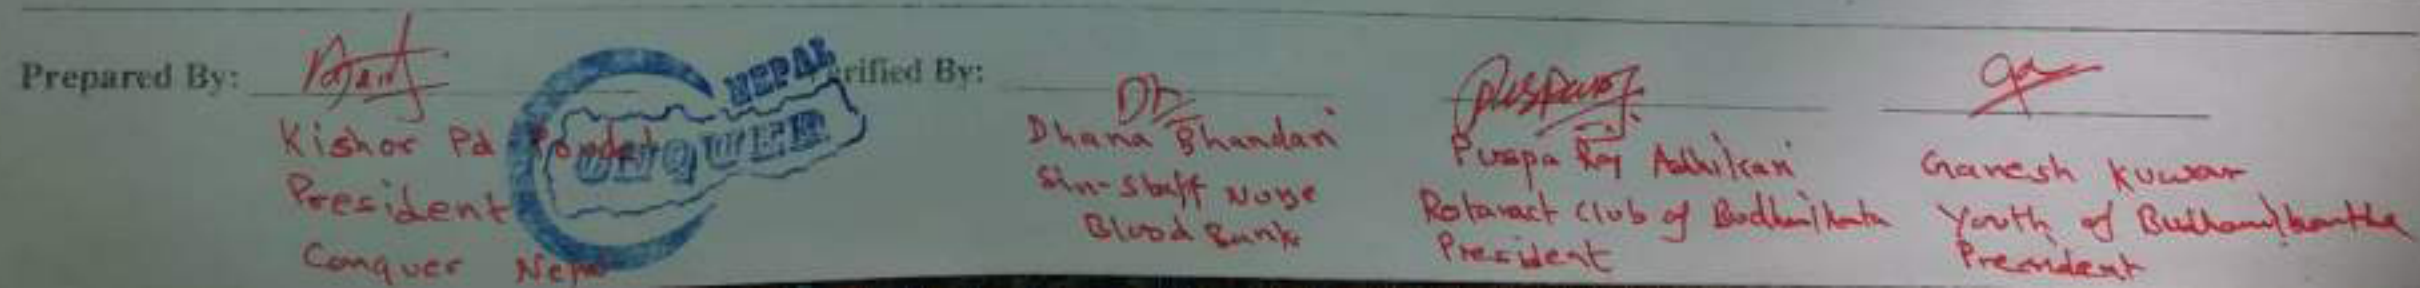 Prepared By:
Kishor Pd Poudel
President
Conquer Nepal
NEPAL
CONQUER
Verified By:
Dhana Bhandari
Sin-staff Nurse
Blood Bank
Puspa Raj Adhikari
Rotaract club of Budhanilkantha
President
Ganesh Kuwar
Youth of Budhanilkantha
President